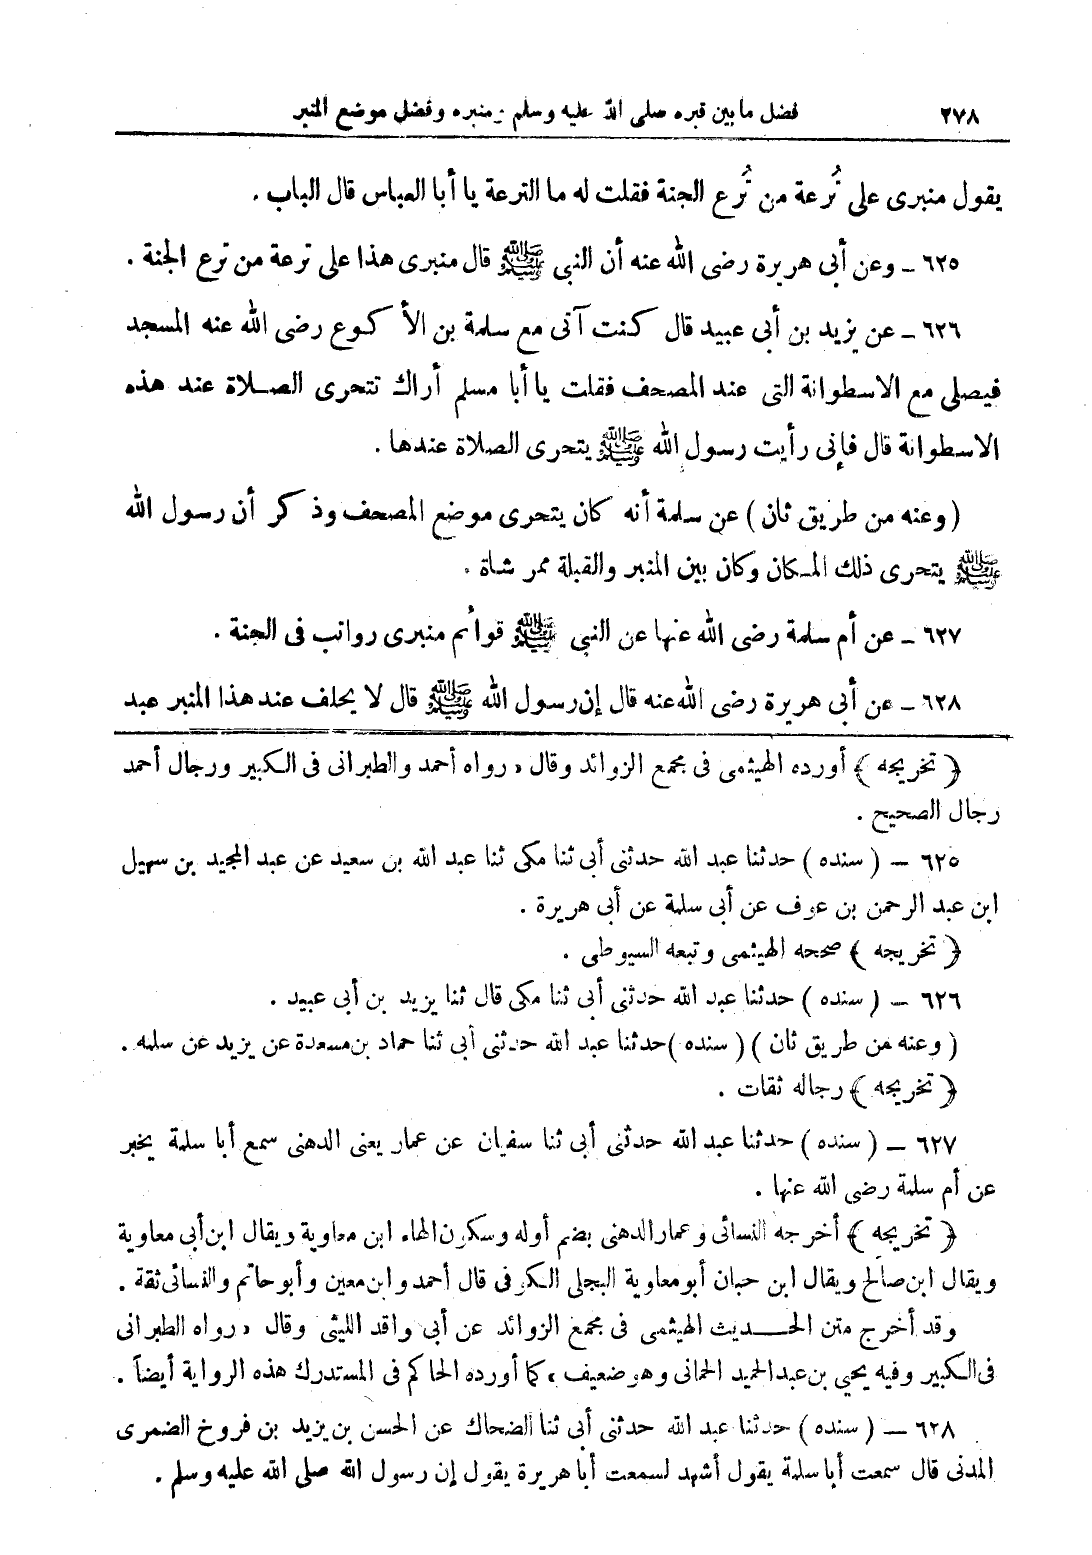 ٢٧٨ فضل ما بين قبره صلى الله عليه وسلم ومنبره وفضل موضع المنبر
يقول منبرى على تُرعة من تُرع الجنة فقلت له ما الترعة يا أبا العباس قال الباب .
٦٢٥ - وعن أبى هريرة رضى الله عنه أن النبى ﷺ قال منبرى هذا على ترعة من ترع الجنة .
٦٢٦ - عن يزيد بن أبى عبيد قال كنت آتى مع سلمة بن الأكوع رضى الله عنه المسجد
فيصلى مع الاسطوانة التى عند المصحف فقلت يا أبا مسلم أراك تتحرى الصلاة عند هذه
الاسطوانة قال فإنى رأيت رسول الله ﷺ يتحرى الصلاة عندها .
( وعنه من طريق ثان ) عن سلمة أنه كان يتحرى موضع المصحف وذكر أن رسول الله
ﷺ يتحرى ذلك المكان وكان بين المنبر والقبلة ممر شاة .
٦٢٧ - عن أم سلمة رضى الله عنها عن النبى ﷺ قوائم منبرى رواتب فى الجنة .
٦٢٨ - عن أبى هريرة رضى الله عنه قال إن رسول الله ﷺ قال لا يحلف عند هذا المنبر عبد
﴿ تخريجه ﴾ أورده الهيثمى فى مجمع الزوائد وقال « رواه أحمد والطبرانى فى الكبير ورجال أحمد
رجال الصحيح .
٦٢٥ — ( سنده ) حدثنا عبد الله حدثنى أبى ثنا مكى ثنا عبد الله بن سعيد عن عبد المجيد بن سهيل
ابن عبد الرحمن بن عوف عن أبى سلمة عن أبى هريرة .
﴿ تخريجه ﴾ صححه الهيثمى وتبعه السيوطى .
٦٢٦ — ( سنده ) حدثنا عبد الله حدثنى أبى ثنا مكى قال ثنا يزيد بن أبى عبيد .
( وعنه من طريق ثان ) ( سنده ) حدثنا عبد الله حدثنى أبى ثنا حماد بن مسعدة عن يزيد عن سلمه .
﴿ تخريجه ﴾ رجاله ثقات .
٦٢٧ — ( سنده ) حدثنا عبد الله حدثنى أبى ثنا سفيان عن عمار يعنى الدهنى سمع أبا سلمة يخبر
عن أم سلمة رضى الله عنها .
﴿ تخريجه ﴾ أخرجه النسائى وعمار الدهنى بضم أوله وسكون الهاء ابن معاوية ويقال ابن أبى معاوية
ويقال ابن صالح ويقال ابن حبان أبو معاوية البجلى الكوفى قال أحمد وابن معين وأبو حاتم والنسائى ثقة .
وقد أخرج متن الحديث الهيثمى فى مجمع الزوائد عن أبى واقد الليثى وقال « رواه الطبرانى
فى الكبير وفيه يحيى بن عبد الحميد الحمانى وهو ضعيف » كما أورده الحاكم فى المستدرك هذه الرواية أيضاً .
٦٢٨ — ( سنده ) حدثنا عبد الله حدثنى أبى ثنا الضحاك عن الحسن بن يزيد بن فروخ الضمرى
المدنى قال سمعت أبا سلمة يقول أشهد لسمعت أبا هريرة يقول إن رسول الله صلى الله عليه وسلم .